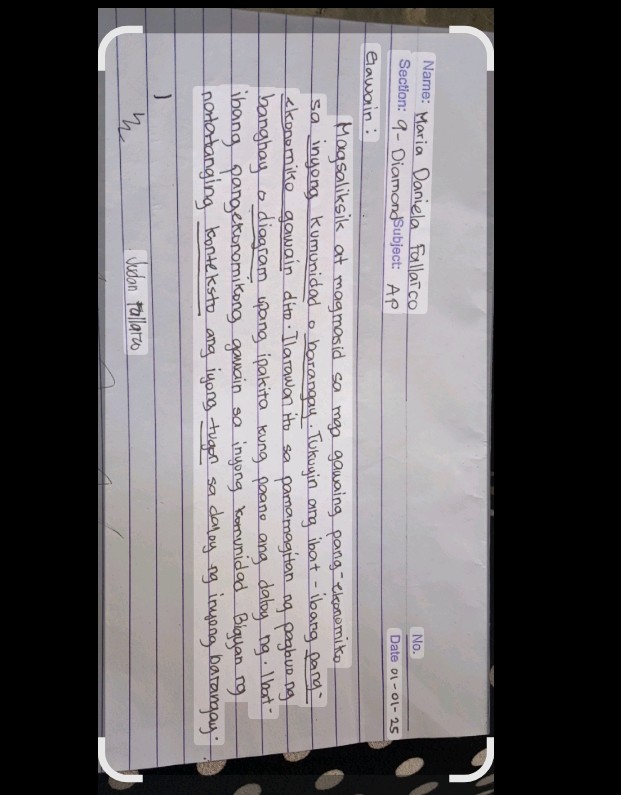 Name: Maria Daniela Fallarco No.
Section: 9- Diamond Subject: AP Date 01-01-25
Gawain:
Magsaliksik at magmasid sa mga gawaing pang-ekonomiko
sa inyong kumunidad o barangay. Tukuyin ang ibat-ibang pang-
ekonomiko gawain dito. Ilarawan ito sa pamamagitan ng pagbuo ng
banghay o diagram upang ipakita kung paano ang daloy ng. Ibat-
ibang pangekonomikong gawain sa inyong komunidad Bigyan ng
konteksto ang iyong tugon sa daloy ng inyong barangay.
Fallarco